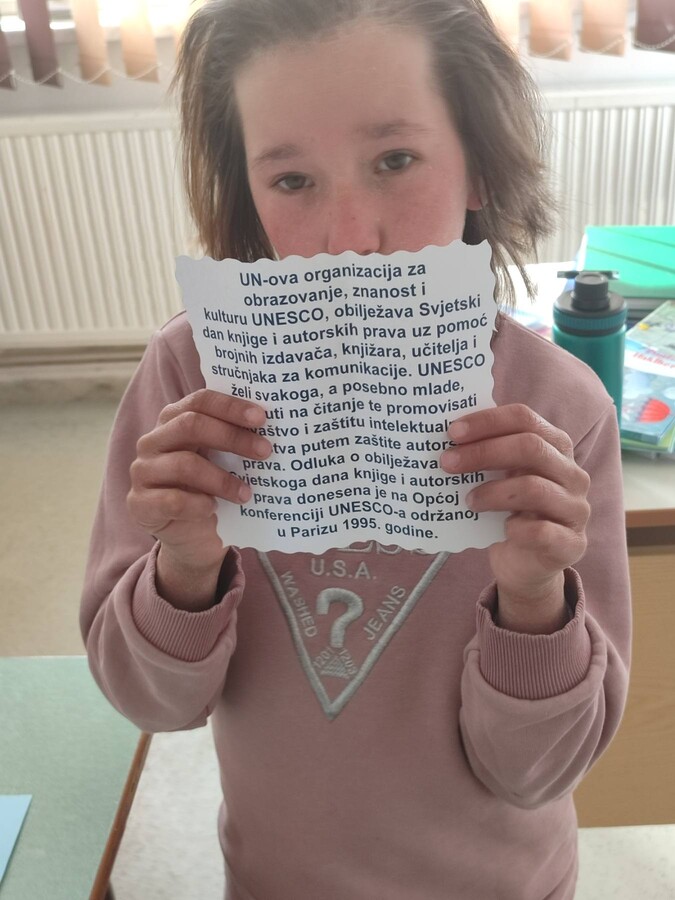 UN-ova organizacija za
obrazovanje, znanost i
kulturu UNESCO, obilježava Svjetski
dan knjige i autorskih prava uz pomoć
brojnih izdavača, knjižara, učitelja i
stručnjaka za komunikacije. UNESCO
želi svakoga, a posebno mlade,
uti na čitanje te promovisati
vaštvo i zaštitu intelektual
tva putem zaštite autors
prava. Odluka o obilježava
Svjetskoga dana knjige i autorskih
prava donesena je na Općoj
konferenciji UNESCO-a održanoj
u Parizu 1995. godine.
U.S.A.
WASHED
?
JEANS